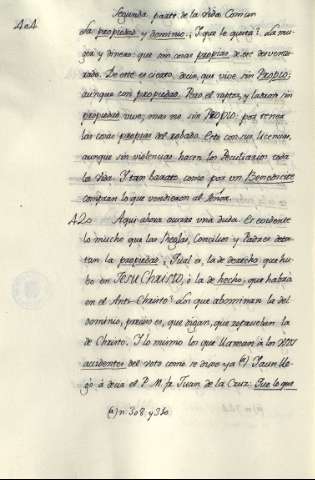 Segunda parte de la Vida Comun
404
la propiedad y dominio. ¿I que le quita? La mu-
ger y dinero: que son cosas propias de ese desventu-
rado. De este es cierto decir, que vive sin Proprio;
aunque con propiedad. Pero el raptor, y ladron sin
propiedad vive, mas no sin Proprio: por tener
las cosas propias del robado. Esto con sus licencias,
aunque sin violencias hacen los Peculiarios toda
la vida. Y tan barato como por un Benedicite
compran lo que vendieron al Señor.
420. Aqui ahora ocurre una duda. Es evidente
lo mucho que las Reglas, Concilios y Padres detes-
tan la propiedad: ¿Qual es, la de derecho que hu-
bo en JESUCHRISTO; ó la de hecho, que habrá
en el Anti-Christo? Los que abominan la del
dominio, preciso es, que digan, que reprueben la
de Christo. Y lo mismo los que llaman á los otros
accidentes del voto como se dixo ya (a) Y aun lle-
gó á decir el P. M. fr. Juan de la Cruz: Fue lo que
(a) n. 308. y 310.